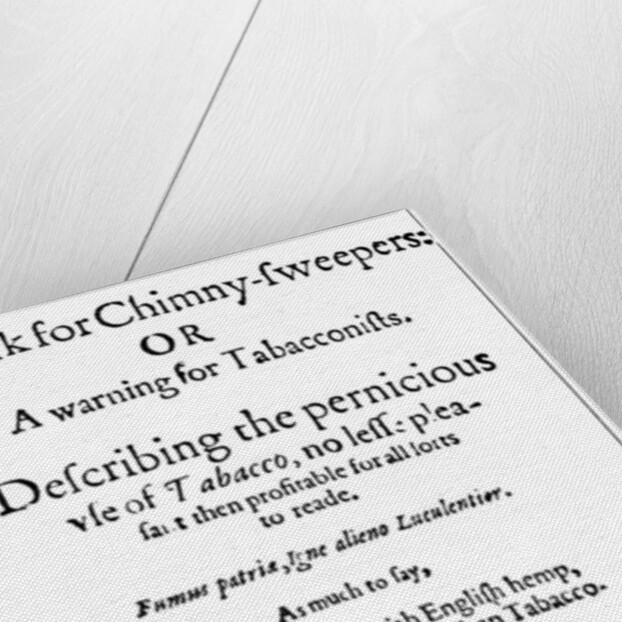 k for Chimny-ſweepers:
OR
A warning for Tabacconiſts.
Deſcribing the pernicious
vſe of Tabacco, no leſſe plea-
ſant then profitable for all ſorts
to reade.
Fumus patriæ, Igne alieno Luculentior.
As much to ſay,
Engliſh hemp,
Tabacco.